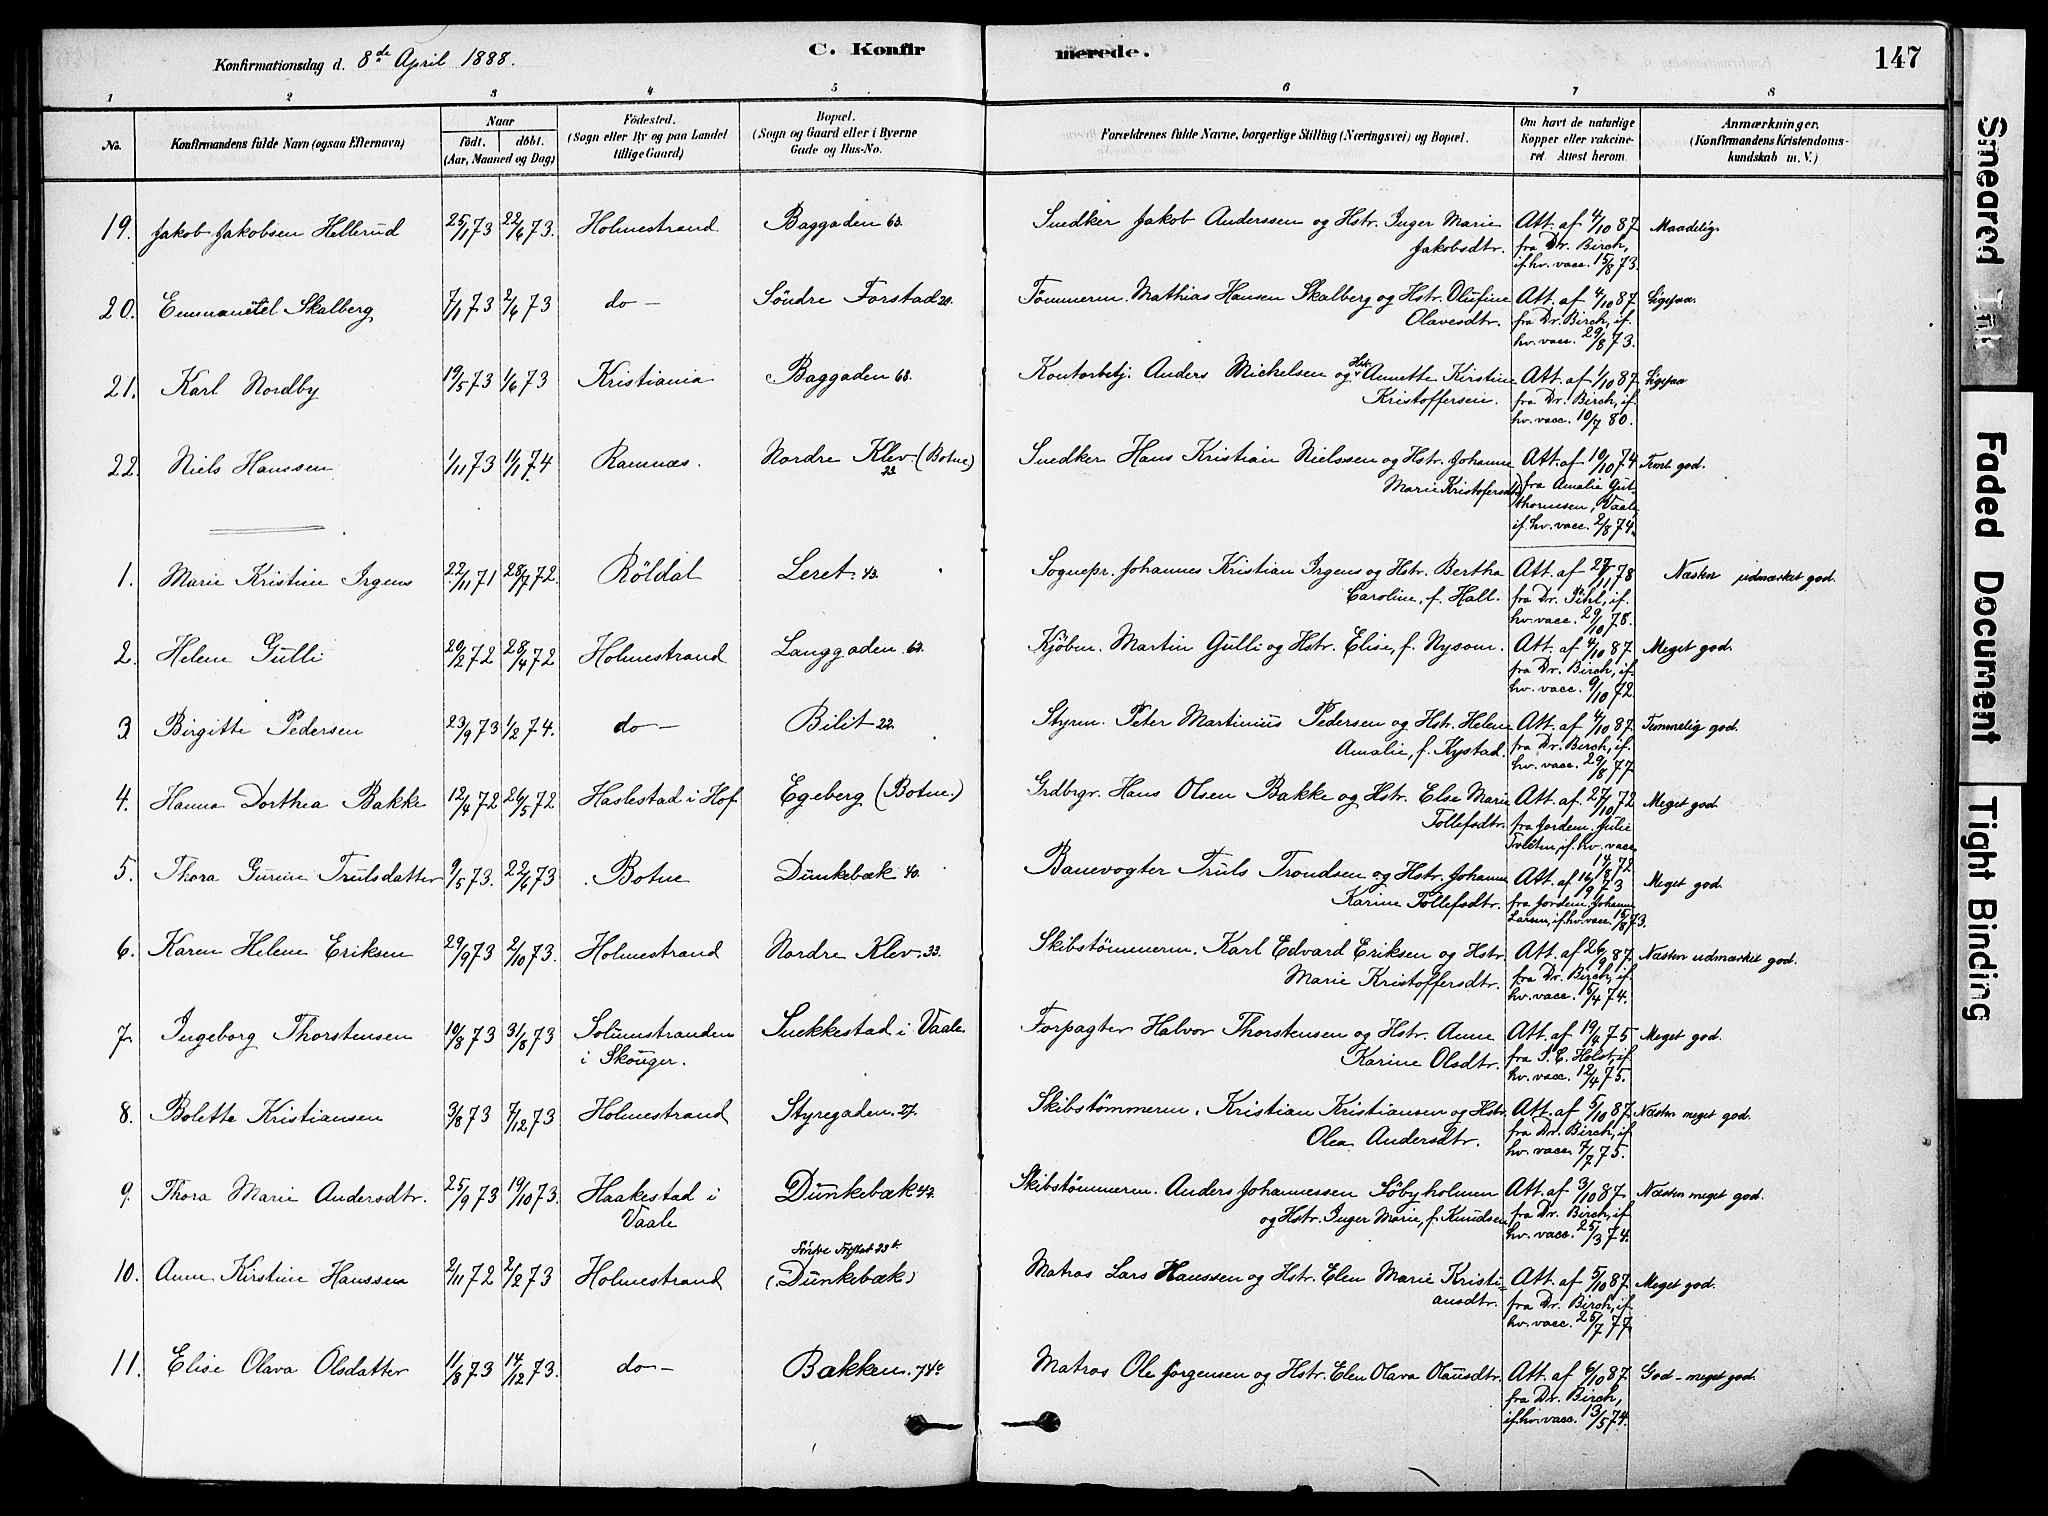 Konfirmationsdag d. 8de April 1888.
C. Konfirmerede.
147
1 2 3 4 5 6 7 8
No.
Konfirmandens fulde Navn (ogsaa Efternavn)
Naar
født. døbt.
(Aar, Maaned og Dag)
Fødested.
(Sogn eller By og paa Landet
tillige Gaard)
Bopæl.
(Sogn og Gaard eller i Byerne
Gade og Hus-No.
Forældrenes fulde Navne, borgerlige Stilling (Næringsvei) og Bopæl.
Om havt de naturlige
Kopper eller vakcine-
ret. Attest herom.
Anmærkninger.
(Konfirmandens Kristendoms-
kundskab m. V.)
19. Jakob Jakobsen Hellerud 25/1 73 22/6 73. Holmestrand Baggaden 63. Snedker Jakob Anderssen og Hstr. Inger Marie Att. af 4/10 87 Maadelig
Jakobsdtr. fra Dr. Birch,
if. hv. vacc. 15/8 73.
20. Emmanuel Skalberg 7/1 73 2/6 73 do — Söndre Forstad 20. Tømmerm. Mathias Hansen Skalberg og Hstr. Olufine Att. af 4/10 87 Ligesaa.
Olavesdtr. fra Dr. Birch, if.
hv. vacc. 29/8 73.
21. Karl Nordby 19/5 73 1/6 73 Kristiania Baggaden 68. Kontorbetj. Anders Michelsen og Hstr. Annette Kirstine Att. af 1/10 87 Ligesaa
Kristoffersen. fra Dr. Birch, if.
hv. vacc. 10/7 80.
22. Niels Hanssen 1/11 73 11/1 74 Ramnæs. Nordre Klev (Botne) 22 Snedker Hans Kristian Nielssen og Hstr. Johanne Att. af 19/10 74 Teml. god.
Marie Kristofersdtr. fra Amalie Gut-
thormsen, Vaale,
if. hv. vacc. 2/8 74.
1. Marie Kristine Irgens 22/11 71 28/7 72. Röldal Leret. 43. Sognepr. Johannes Kristian Irgens og Hstr. Bertha Att. af 27/11 78 Næsten udmærket god.
Caroline, f. Hall. fra Dr. Pihl, if.
hv. vacc. 29/10 78.
2. Helene Gulli 20/2 72 28/4 72 Holmestrand Langgaden 63. Kjöbm. Martin Gulli og Hstr. Elise, f. Nysom. Att. af 4/10 87 Meget god.
fra Dr. Birch, if.
hv. vacc. 9/10 72.
3. Birgitte Pedersen 23/9 73 1/2 74. do — Bilit 22. Styrm. Peter Martinius Pedersen og Hstr. Helene Att. af 4/10 87. Temmelig god.
Amalie, f. Kystad. fra Dr. Birch, if.
hv. vacc. 29/8 77.
4. Hanna Dorthea Bakke 12/4 72 26/5 72 Haslestad i Hof. Egeberg (Botne.) Grdbrgr. Hans Olsen Bakke og Hstr. Else Marie Att. af 27/10 72 Meget god.
Tollefsdtr. fra Jordem. Julie
Tveiten, if. hv. vacc.
14/8 72
5. Thora Gurine Trulsdatter 9/5 73. 22/6 73 Botne Dunkebæk 40. Banevogter Truls Trondsen og Hstr. Johanne Att. af 16/9 73 Meget god.
Karine Tollefsdtr. fra Jordem. Johanne
Larsen, if. hv. vacc. 15/8 73.
6. Karen Helene Eriksen 29/9 73 2/10 73. Holmestrand Nordre Klev. 33. Skibstömmerm. Karl Edvard Eriksen og Hstr. Att. af 26/9 87. Næsten udmærket god.
Marie Kristoffersdtr. fra Dr. Birch, if.
hv. vacc. 15/4 74.
7. Ingeborg Thorstensen 10/8 73 31/8 73 Solumstranden Snekkestad i Vaale. Forpagter Halvor Thorstensen og Hstr. Anne Att. af 19/4 75 Meget god.
i Skouger. Karine Olsdtr. fra P. C. Holst, if.
hv. vacc. 12/4 75.
8. Bolette Kristiansen 3/8 73 7/12 73 Holmestrand Styregaden. 27. Skibstömmerm. Kristian Kristiansen og Hstr. Att. af 5/10 87. Næsten meget god.
Olea Andersdtr. fra Dr. Birch, if
hv. vacc. 7/7 75.
9. Thora Marie Andersdtr. 25/9 73 19/10 73. Haakestad i Dunkebæk 42. Skibstömmerm. Anders Johannessen Söbyholmen Att. af 3/10 87. Næsten meget god.
Vaale og Hstr. Inger Marie, f. Knudsen fra Dr. Birch, if
hv. vacc. 25/3 74.
Söndre Forstad 23b
10. Anne Kirstine Hanssen 2/11 72 2/2 73 Holmestrand (Dunkebæk) Matros Lars Hanssen og Hstr. Elen Marie Kristi- Att. af 5/10 87. Meget god.
ansdtr. fra Dr. Birch, if
hv. vacc. 25/7 77.
11. Elise Olava Olsdatter 11/8 73 14/12 73. do — Bakken. 74c Matros Ole Jörgensen og Hstr. Elen Olava Olausdtr. Att. af 6/10 87. God – meget god.
fra Dr. Birch,
if. hv. vacc. 13/5 74.
Smeared Ink
Faded Document
Tight Binding